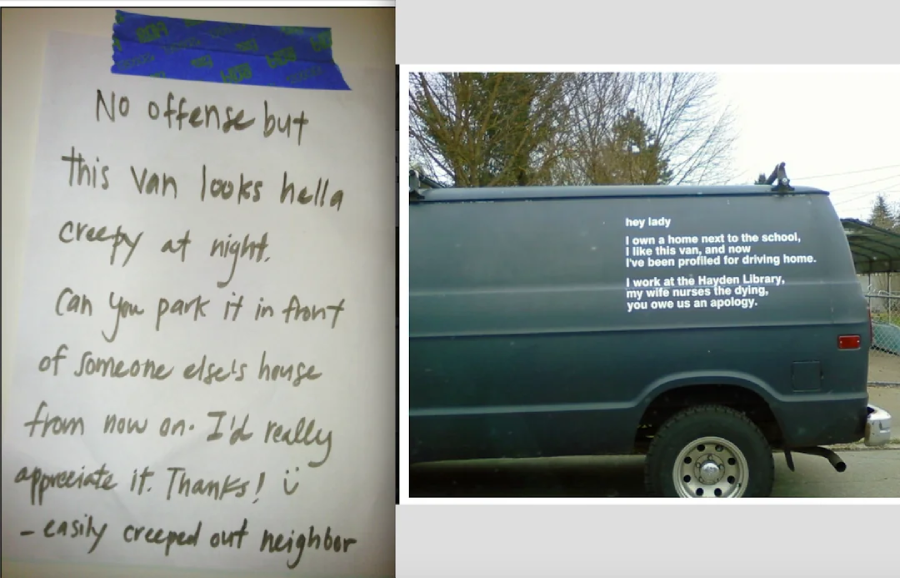 No offense but
this van looks hella
creepy at night.
Can you park it in front
of someone else's house
from now on. I'd really
appreciate it. Thanks! :)
- easily creeped out neighbor
hey lady
I own a home next to the school,
I like this van, and now
I've been profiled for driving home.
I work at the Hayden Library,
my wife nurses the dying,
you owe us an apology.